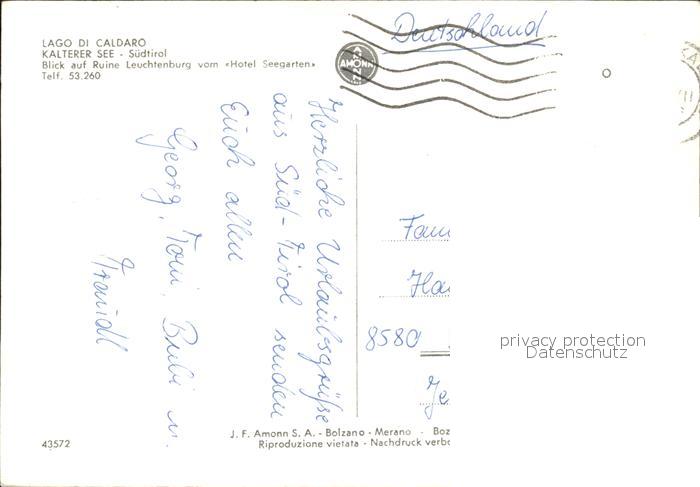 LAGO DI CALDARO
KALTERER SEE - Südtirol
Blick auf Ruine Leuchtenburg vom «Hotel Seegarten»
Telf. 53.260
Deutschland
AMONN
Herzliche Urlaubsgrüße
aus Süd-Tirol senden
Euch allen
Georg, Toni, Bubi u.
Traudl
Fam
Ha
8580
privacy protection
Datenschutz
J. F. Amonn S. A. - Bolzano - Merano - Boz
43572
Riproduzione vietata - Nachdruck verbo